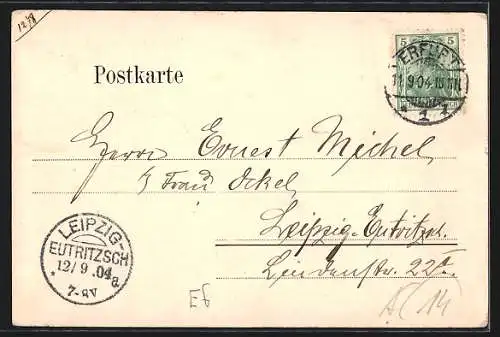 12/9
Postkarte
5 5
ERFURT
11.9.04.
* 1 *
Herrn Ernest Michel,
Frau Ockel,
Leipzig-Eutritzsch.
Lindenstr. 22
LEIPZIG-
EUTRITZSCH
12/9.04
a
7-8V
Ef
14